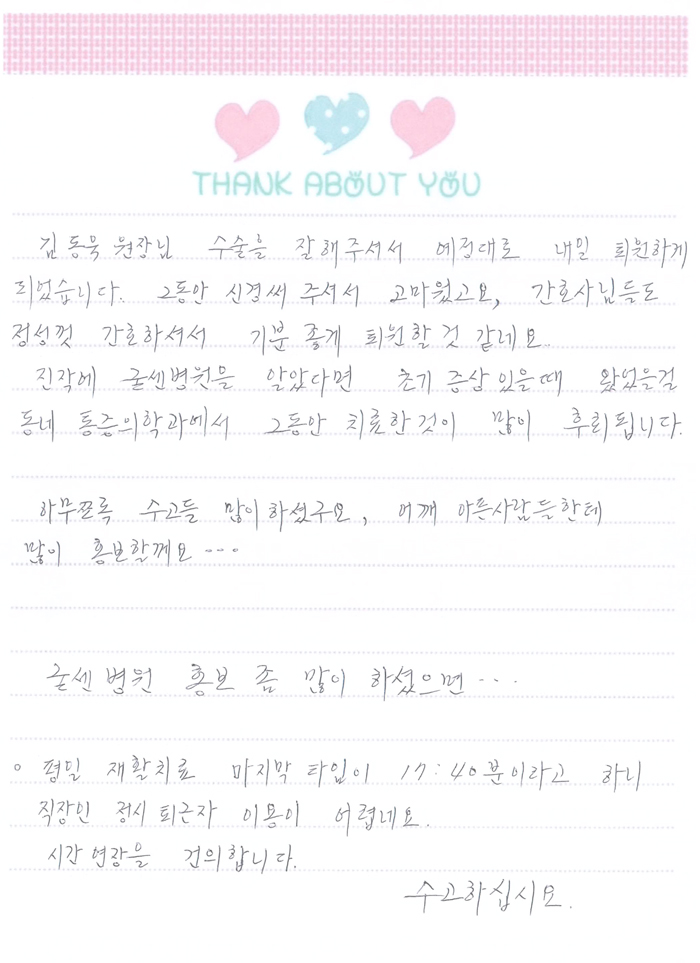 THANK ABOUT YOU
김동욱 원장님 수술을 잘해주셔서 예정대로 내일 퇴원하게
되었습니다. 그동안 신경써 주셔서 고마웠고요, 간호사님들도
정성껏 간호하셔서 기분 좋게 퇴원할 것 같네요..
진작에 굳센병원을 알았다면 초기 증상 있을때 왔었을걸
동네 통증의학과에서 그동안 치료한것이 많이 후회됩니다.
아무쪼록 수고들 많이하셨구요, 어깨 아픈사람들한테
많이 홍보할께요 ···
굳센병원 홍보 좀 많이 하셨으면 ···
○ 평일 재활치료 마지막 타임이 17:40분이라고 하니
직장인 정시 퇴근자 이용이 어렵네요.
시간 연장을 건의합니다.
수고하십시요.